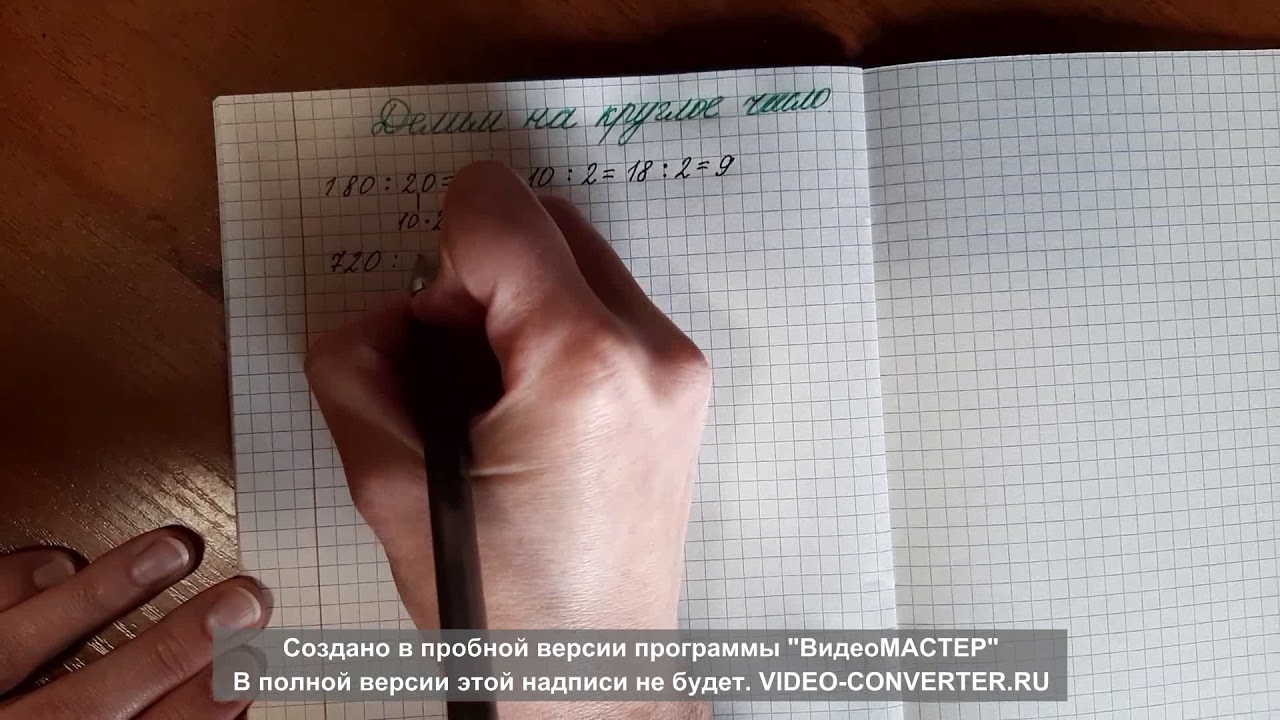 Делим на круглое число
180 : 20 = 10 : 2 = 18 : 2 = 9
10 · 2
720 :
Создано в пробной версии программы "ВидеоМАСТЕР"
В полной версии этой надписи не будет. VIDEO-CONVERTER.RU